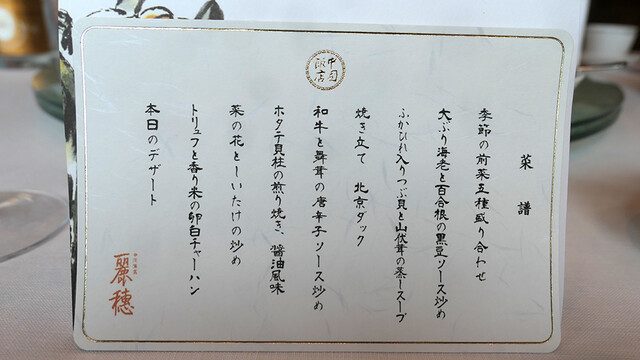 中国飯店
菜譜
季節の前菜五種盛り合わせ
大ぶり海老と百合根の黒豆ソース炒め
ふかひれ入りつぶ貝と山伏茸の蒸しスープ
焼き立て 北京ダック
和牛と舞茸の唐辛子ソース炒め
ホタテ貝柱の煎り焼き、醤油風味
菜の花としいたけの炒め
トリュフと香り米の卵白チャーハン
本日のデザート
麗穂